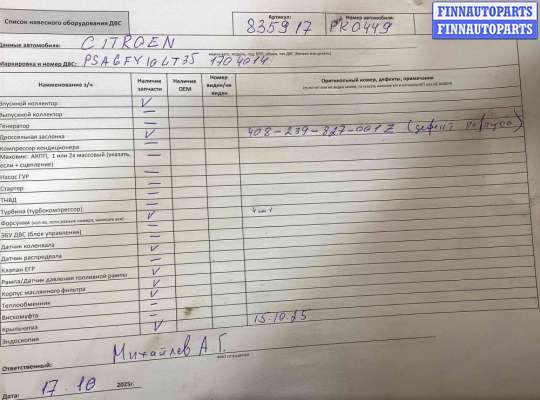 FINNAUTOPARTS
FINNAUTOPARTS
FINNAUTOPARTS
Список навесного оборудования ДВС
Артикул: 835917
Номер автомобиля: PK0449
Данные автомобиля: CITROEN
Маркировка и номер ДВС: PSA6FY10LT35 1704014
Наименование з/ч
Наличие запчасти
Наличие ОЕМ
Номер виден/не виден
Оригинальный номер, дефекты, примечания
Впускной коллектор ✓
Выпускной коллектор —
Генератор —
Дроссельная заслонка ✓ 408-239-827-001Z (дефект
Компрессор кондиционера —
Маховик: АКПП, 1 или 2х массовый (указать, если + сцепление) —
Насос ГУР —
Стартер —
ТНВД —
Турбина (турбокомпрессор) —
Форсунки ✓
ЭБУ ДВС (блок управления) —
Датчик коленвала ✓
Датчик распредвала —
Клапан ЕГР ✓
Рампа/Датчик давления топливной рампы ✓
Корпус масляного фильтра ✓
Теплообменник —
Вискомуфта —
Крыльчатка ✓
Эндоскопия 15.10.25
Ответственный: Михайлев А.Г.
Дата: 17.10 2025г.